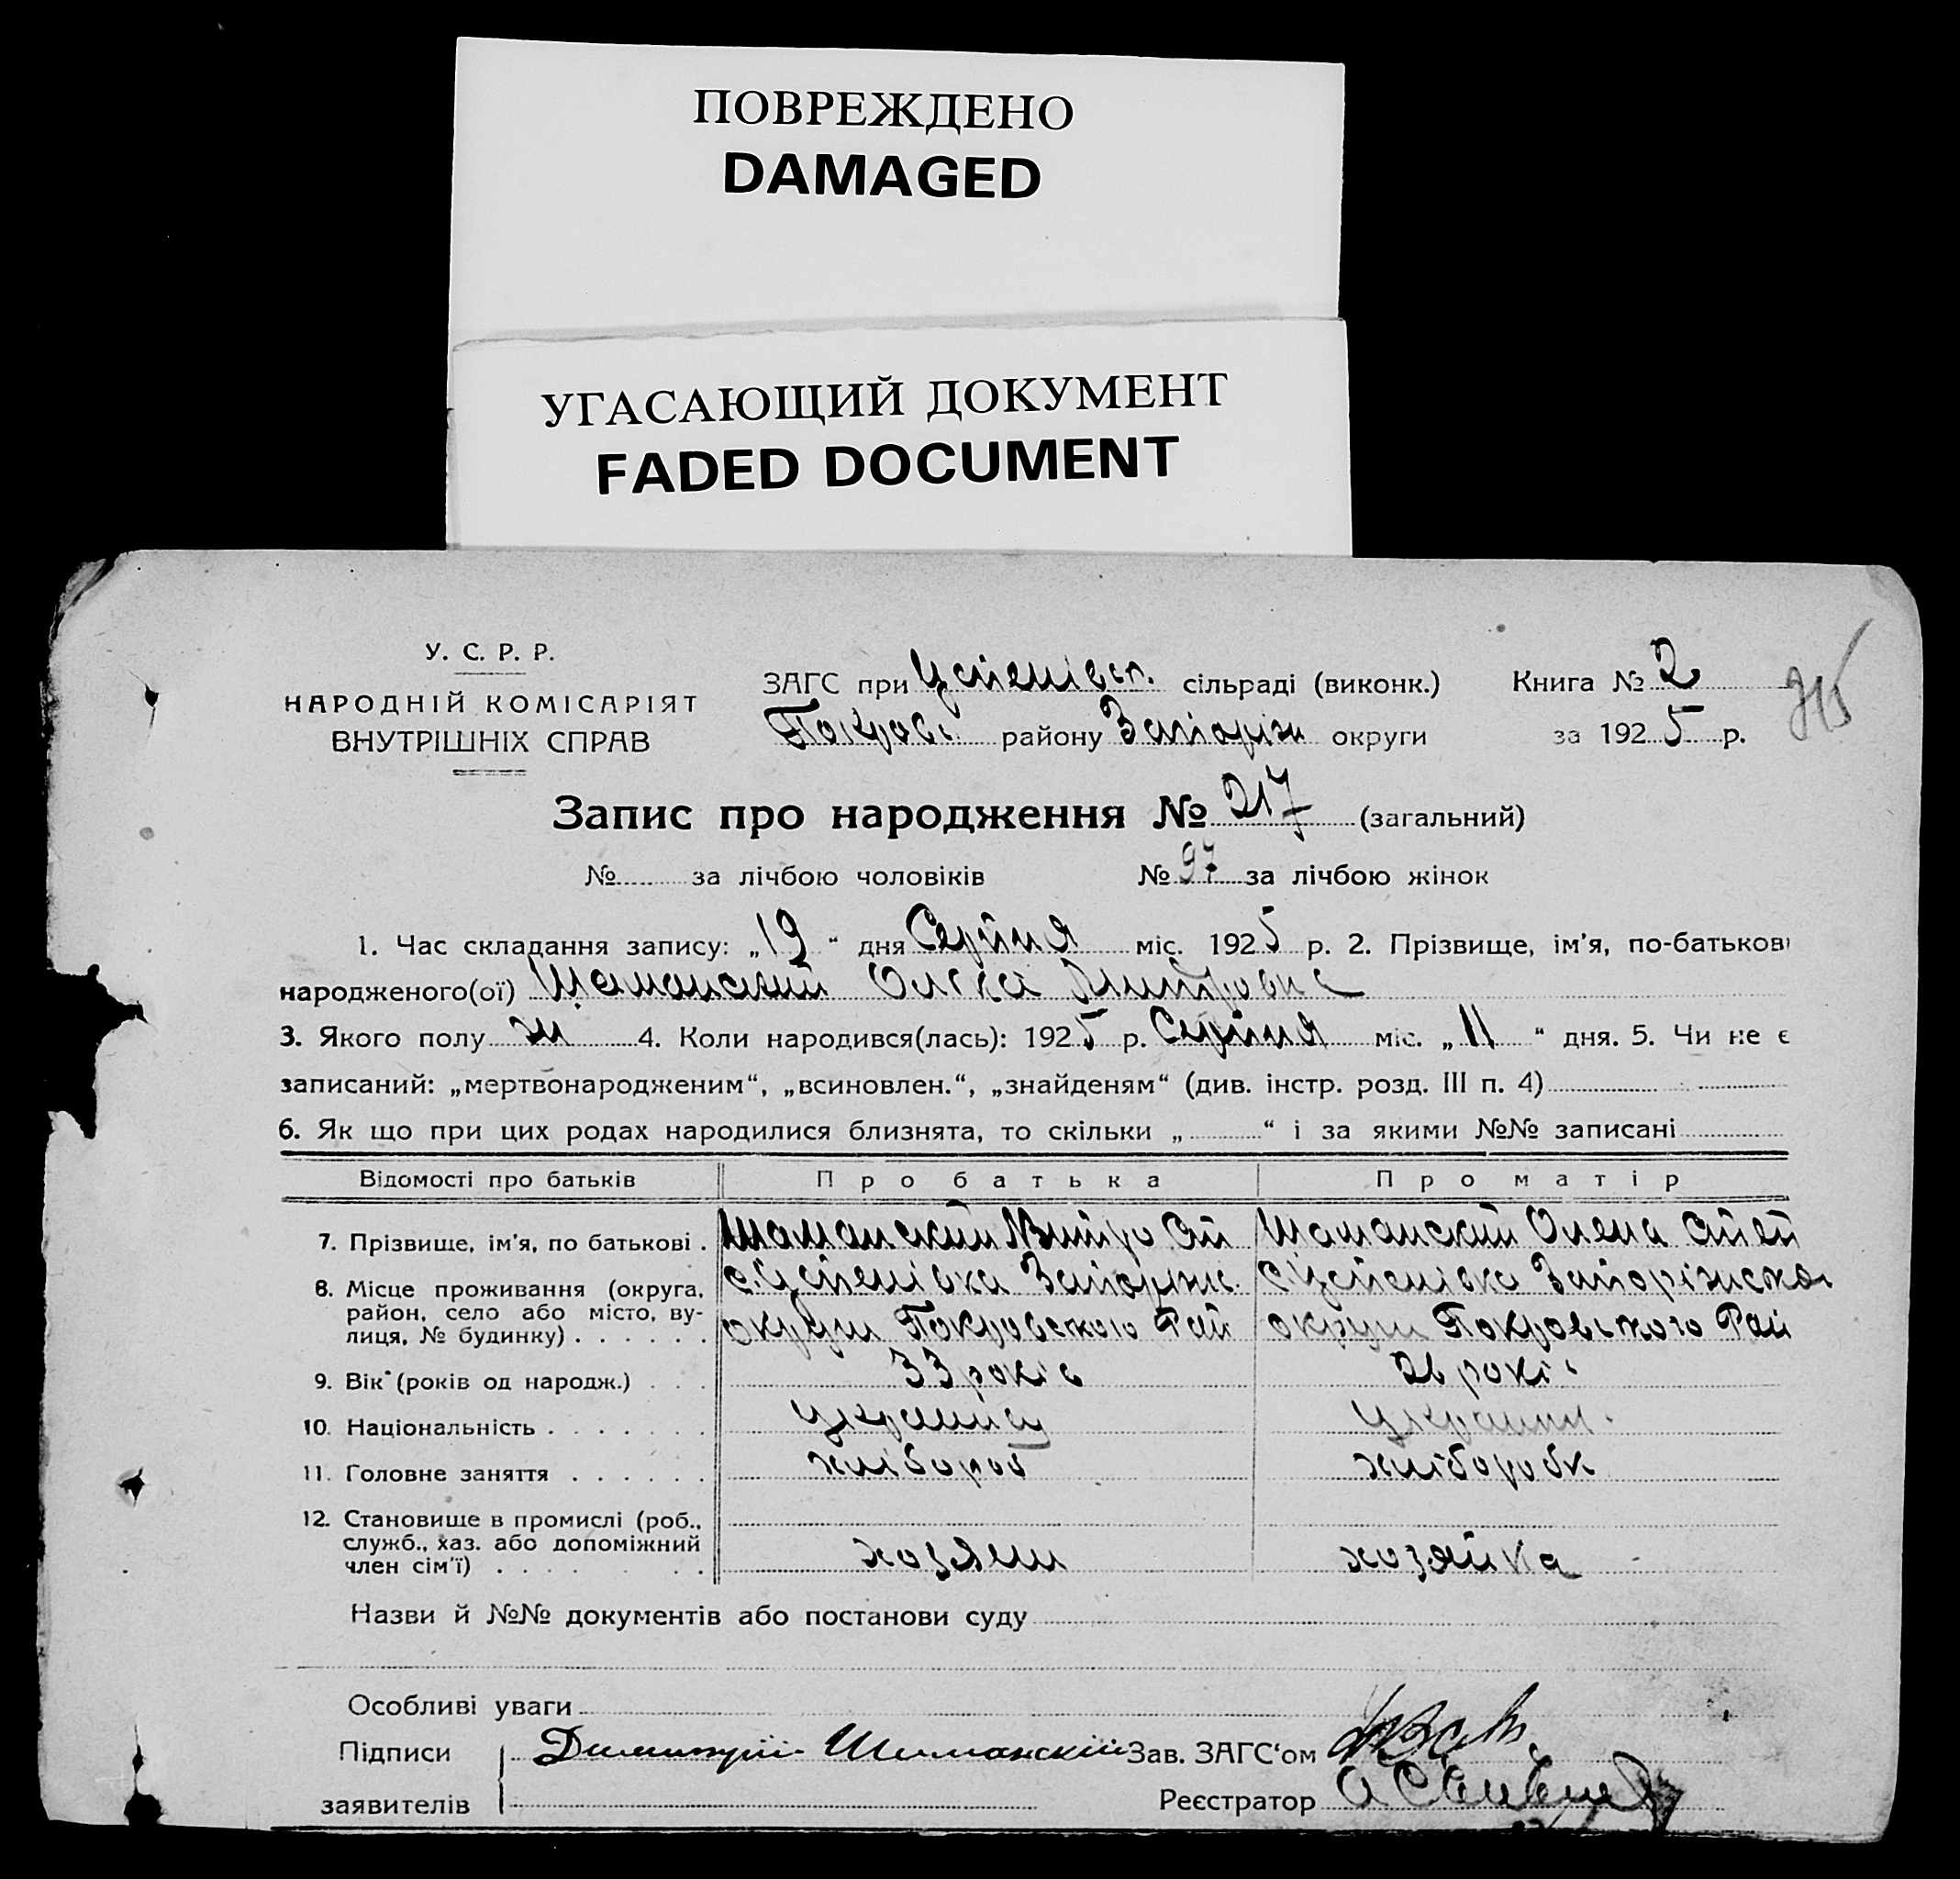 ПОВРЕЖДЕНО
DAMAGED
УГАСАЮЩИЙ ДОКУМЕНТ
FADED DOCUMENT
У. С. Р. Р.
НАРОДНІЙ КОМІСАРІЯТ
ВНУТРІШНІХ СПРАВ
ЗАГС при Успенівсь. сільраді (виконк.)
Покровс. району Запоріж округи
Книга № 2
за 1925 р.
Запис про народження № 217 (загальний)
№ за лічбою чоловіків № 97 за лічбою жінок
1. Час складання запису: „19“ дня Серпня міс. 1925 р. 2. Прізвище, ім'я, по-батькові
народженого(ої) Шаманский Митровна
3. Якого полу ж 4. Коли народився(лась): 1925 р. Серпня міс. „11“ дня. 5. Чи не є
записаний: „мертвонародженим“, „всиновлен.“, „знайденям“ (див. інстр. розд. III п. 4)
6. Як що при цих родах народилися близнята, то скільки „ “ і за якими №№ записані
Відомості про батьків Про батька Про матір
7. Прізвище, ім'я, по батькові . Шаманский Митро Шаманский Олена Степ
8. Місце проживання (округа, с. Успенівка Запоріжс. с. Успенівка Запоріжської
район, село або місто, ву-
лиця, № будинку) . . . . . . округи Покровського Рай округи Покровського Рай
9. Вік (років од народж.) . . . 33 років 26 років
10. Національність . . . . . . . украинц украинк.
11. Головне заняття . . . . . . хлібороб хліборобк
12. Становище в промислі (роб.,
служб., хаз. або допоміжний
член сім'ї) . . . . . . . хозяин хозяйка
Назви й №№ документів або постанови суду
Особливі уваги
Підписи Димитрий Шиманский Зав. ЗАГС'ом
заявителів Реєстратор